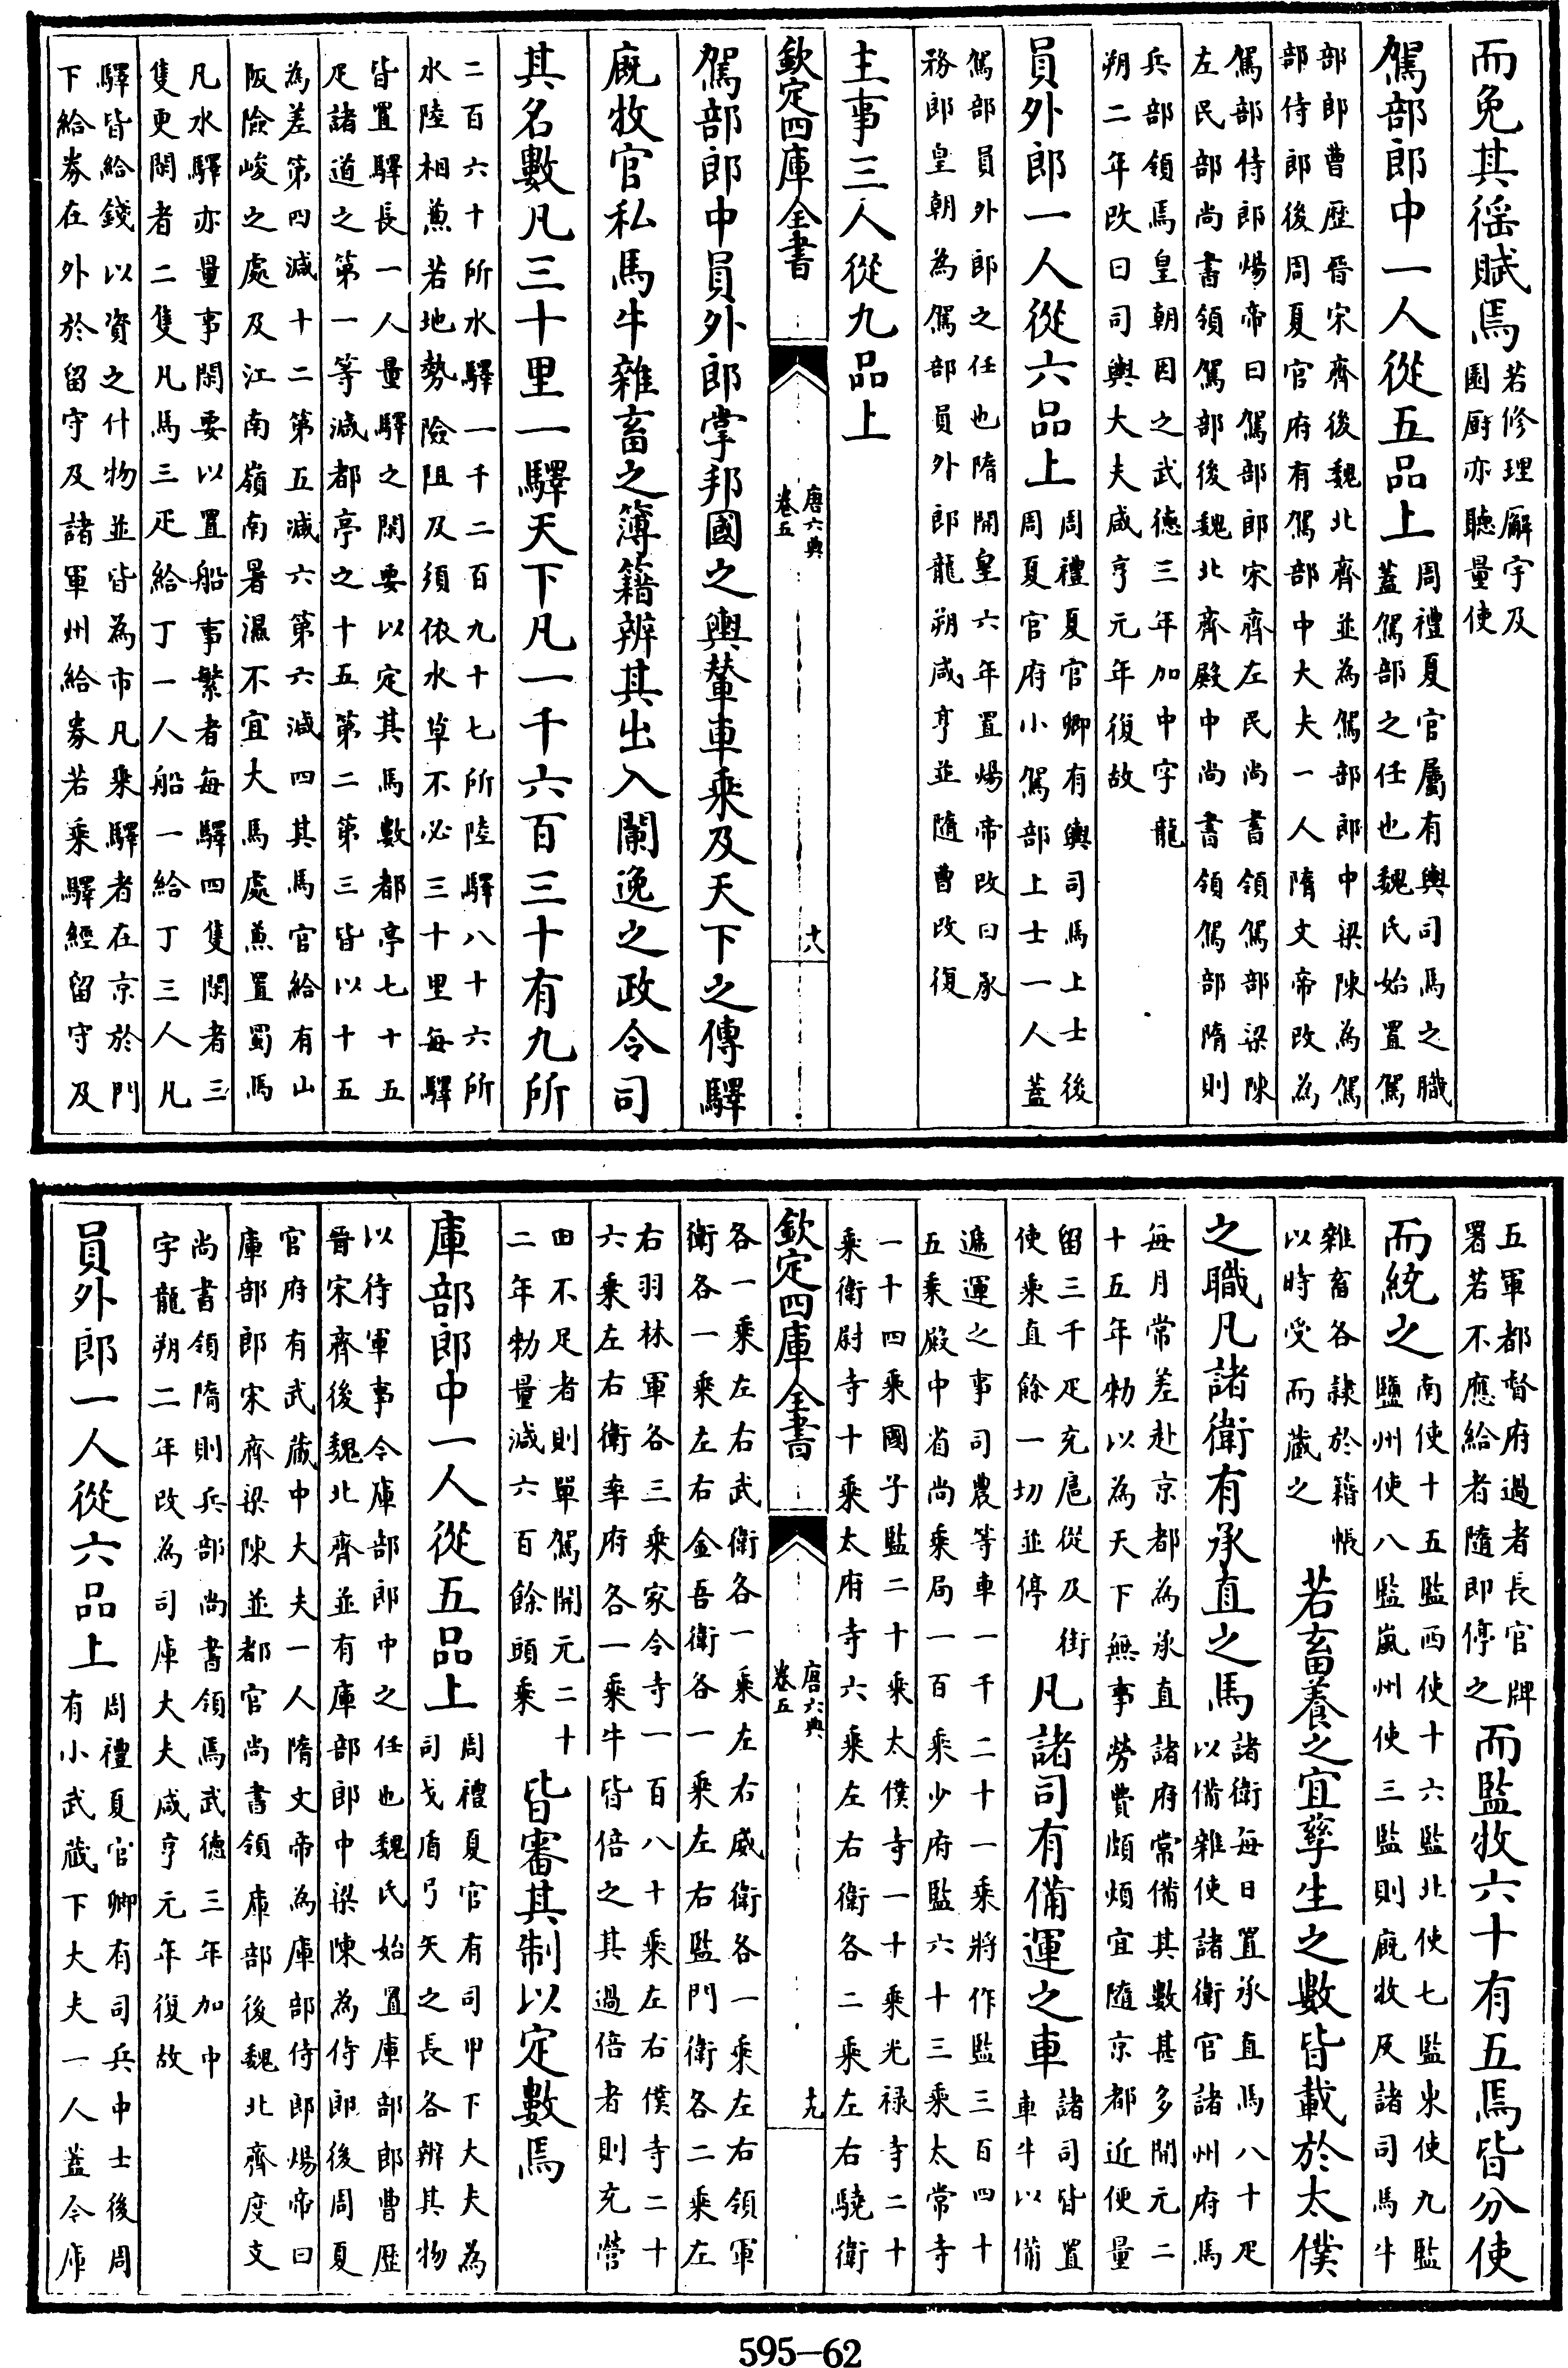 而免其徭賦焉若修理廨宇及園厨亦聽量使
駕部郎中一人從五品上周禮夏官屬有輿司馬之職蓋駕部之任也魏氏始置駕
部郎曹歴晉宋齊後魏北齊並為駕部郎中梁陳為駕部侍郎後周夏官府有駕部中大夫一人隋文帝改為
駕部侍郎煬帝曰駕部郎宋齊左民尚書領駕部梁陳左民部尚書領駕部後魏北齊殿中尚書領駕部隋則
兵部領焉皇朝因之武德三年加中字龍朔二年改曰司輿大夫咸亨元年復故
員外郎一人從六品上周禮夏官卿有輿司馬上士後周夏官府小駕部上士一人蓋
駕部員外郎之任也隋開皇六年置煬帝改曰承務郎皇朝為駕部員外郎龍朔咸亨並隨曹改復
主事三人從九品上
欽定四庫全書 唐六典卷五 十八
駕部郎中員外郎掌邦國之輿輦車乘及天下之傳驛
廐牧官私馬牛雜畜之簿籍辨其出入闌逸之政令司
其名數凡三十里一驛天下凡一千六百三十有九所
二百六十所水驛一千二百九十七所陸驛八十六所水陸相兼若地勢險阻及須依水草不必三十里每驛
皆置驛長一人量驛之閑要以定其馬數都亭七十五疋諸道之第一等減都亭之十五第二第三皆以十五
為差第四減十二第五減六第六減四其馬官給有山阪險峻之處及江南嶺南暑濕不宜大馬處兼置蜀馬
凡水驛亦量事閑要以置船事繁者每驛四隻閑者三隻更閑者二隻凡馬三疋給丁一人船一給丁三人凡
驛皆給錢以資之什物並皆為市凡乘驛者在京於門下給券在外於留守及諸軍州給券若乘驛經留守及
五軍都督府過者長官牌署若不應給者隨即停之而監牧六十有五焉皆分使
而統之南使十五監西使十六監北使七監東使九監鹽州使八監嵐州使三監則廐牧及諸司馬牛
雜畜各隸於籍帳以時受而蔵之若畜養之宜孳生之數皆載於太僕
之職凡諸衛有承直之馬諸衛每日置承直馬八十疋以備雜使諸衛官諸州府馬
每月常差赴京都為承直諸府常備其數甚多開元二十五年勅以為天下無事勞費頗煩宜隨京都近便量
留三千疋充扈從及街使乘直餘一切並停凡諸司有備運之車諸司皆置車牛以備
遞運之事司農等車一千二十一乘將作監三百四十五乘殿中省尚乘局一百乘少府監六十三乘太常寺
一十四乘國子監二十乘太僕寺一十乘光禄寺二十乘衛尉寺十乘太府寺六乘左右衛各二乘左右驍衛
欽定四庫全書 唐六典卷五 十九
各一乘左右武衛各一乘左右威衛各一乘左右領軍衛各一乘左右金吾衛各一乘左右監門衛各二乘左
右羽林軍各三乘家令寺一百八十乘左右僕寺二十六乘左右衛率府各一乘牛皆倍之其過倍者則充營
田不足者則單駕開元二十二年勅量減六百餘頭乘皆審其制以定數焉
庫部郎中一人從五品上周禮夏官有司甲下大夫為司戈盾弓矢之長各辨其物
以待軍事令庫部郎中之任也魏氏始置庫部郎曹歴晉宋齊後魏北齊並有庫部郎中梁陳為侍郎後周夏
官府有武蔵中大夫一人隋文帝為庫部侍郎煬帝曰庫部郎宋齊梁陳並都官尚書領庫部後魏北齊度支
尚書領隋則兵部尚書領焉武德三年加中字龍朔二年改為司庫大夫咸亨元年復故
員外郎一人從六品上周禮夏官卿有司兵中士後周有小武蔵下大夫一人蓋令庫
595-62